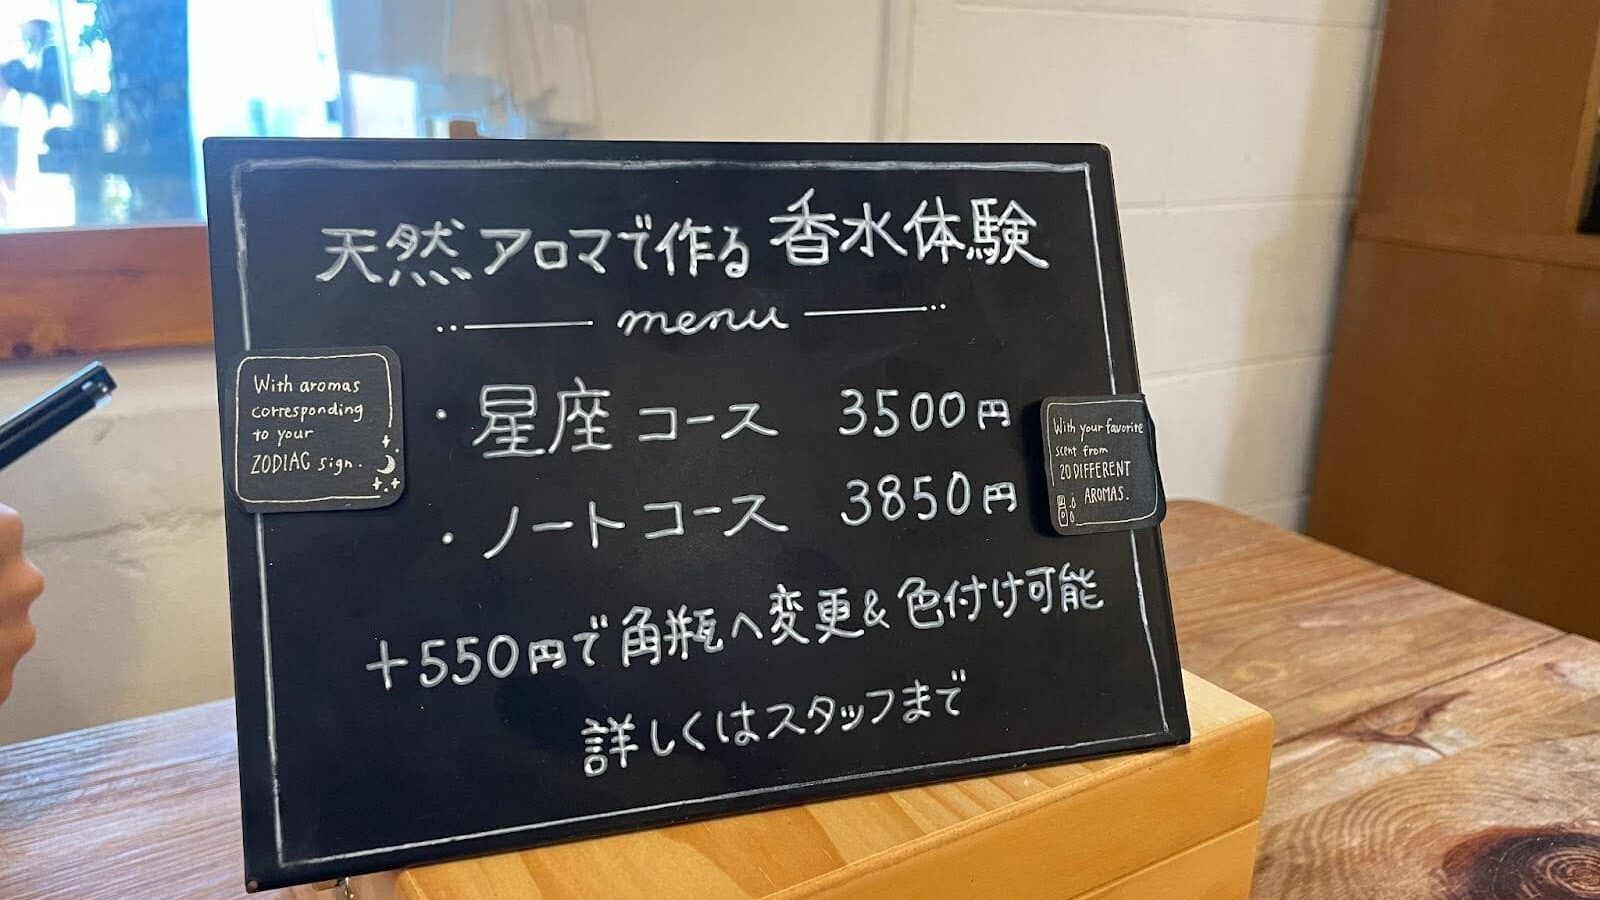 天然アロマで作る 香水体験
menu
・星座コース 3500円
・ノートコース 3850円
+550円で角瓶へ変更&色付け可能
詳しくはスタッフまで
With aromas
corresponding
to your
ZODIAC sign.
With your favorite
scent from
20 DIFFERENT
AROMAS.